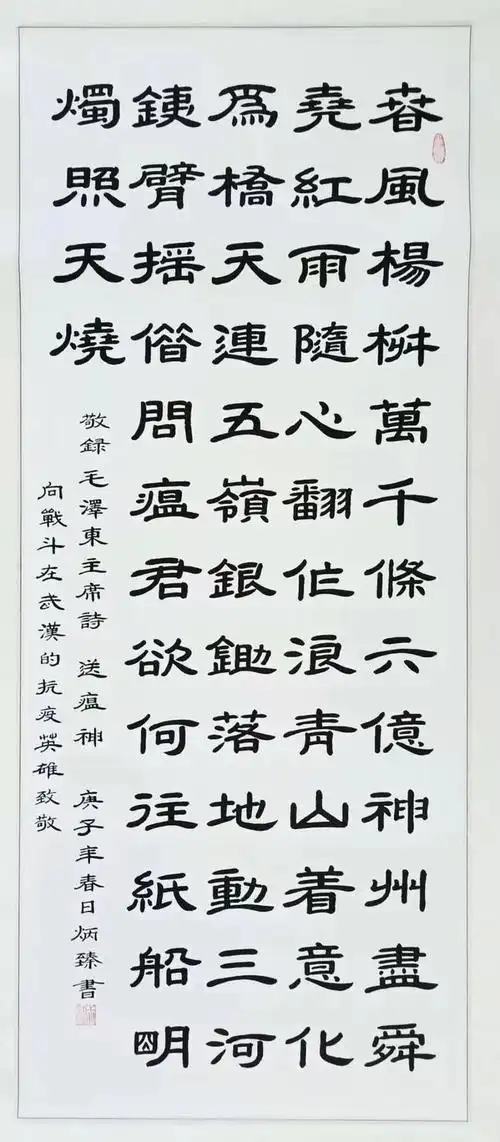 春風楊柳萬千條六億神州盡舜
堯紅雨隨心翻作浪青山着意化
爲橋天連五嶺銀鋤落地動三河
銕臂摇借問瘟君欲何往紙船明
燭照天燒
敬録毛澤東主席詩 送瘟神 庚子年春日炳臻書
向戰斗在武漢的抗疫英雄致敬